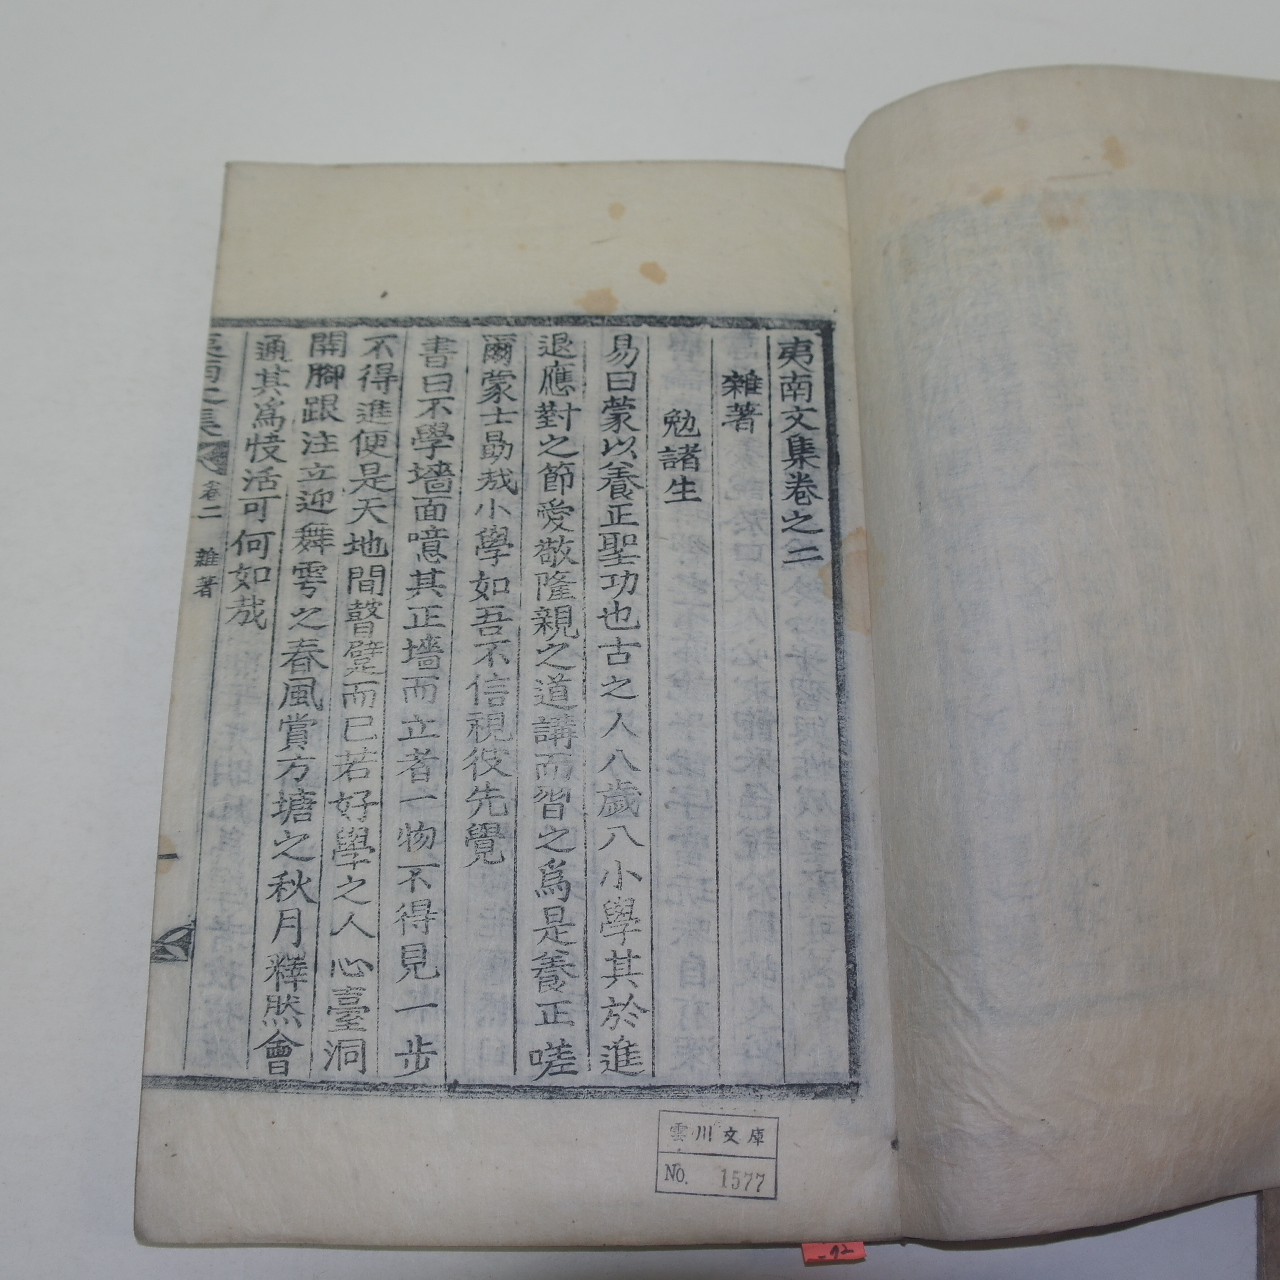 夷南文集卷之二
雜著
勉諸生
易曰蒙以養正聖功也古之人八歲入小學其於進
退應對之節愛敬隆親之道講而習之爲是養正嗟
爾蒙士勗哉小學如吾不信視彼先覺
書曰不學墻面噫其正墻而立者一物不得見一步
不得進便是天地間瞽躄而已若好學之人心臺洞
開腳跟注立迎舞雩之春風賞方塘之秋月釋然會
通其爲快活可何如哉
夷南文集 卷二 雜著 一
雲川文庫
No. 1577
-92